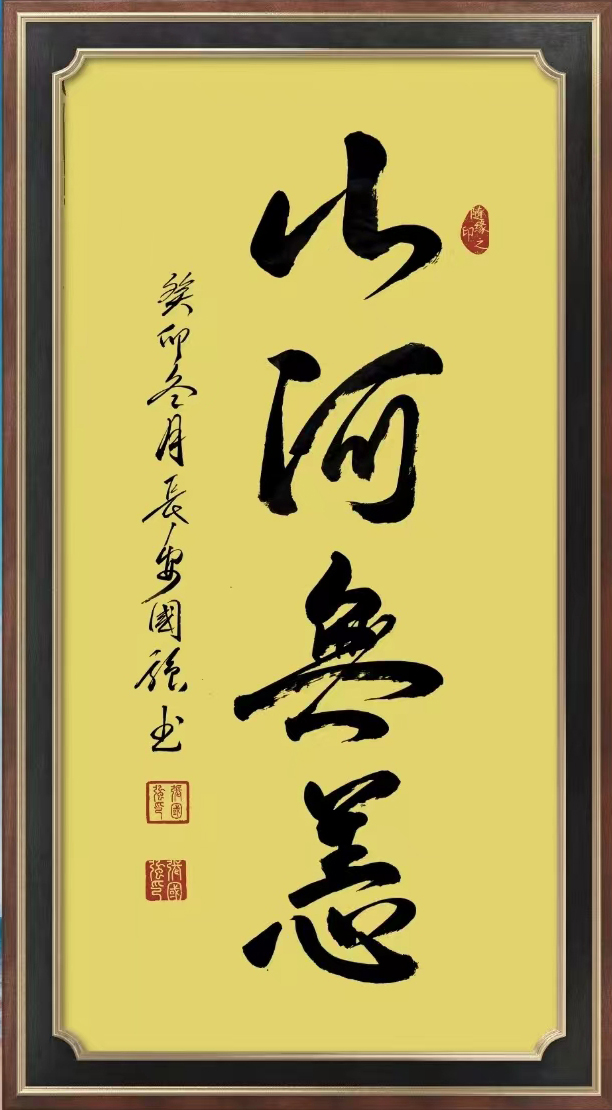 山河無恙
癸卯冬月長安國強书
隨緣之印
張國強印
張國強印